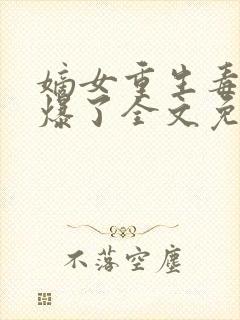 嫡女重生毒
爆了全文免
不落空尘